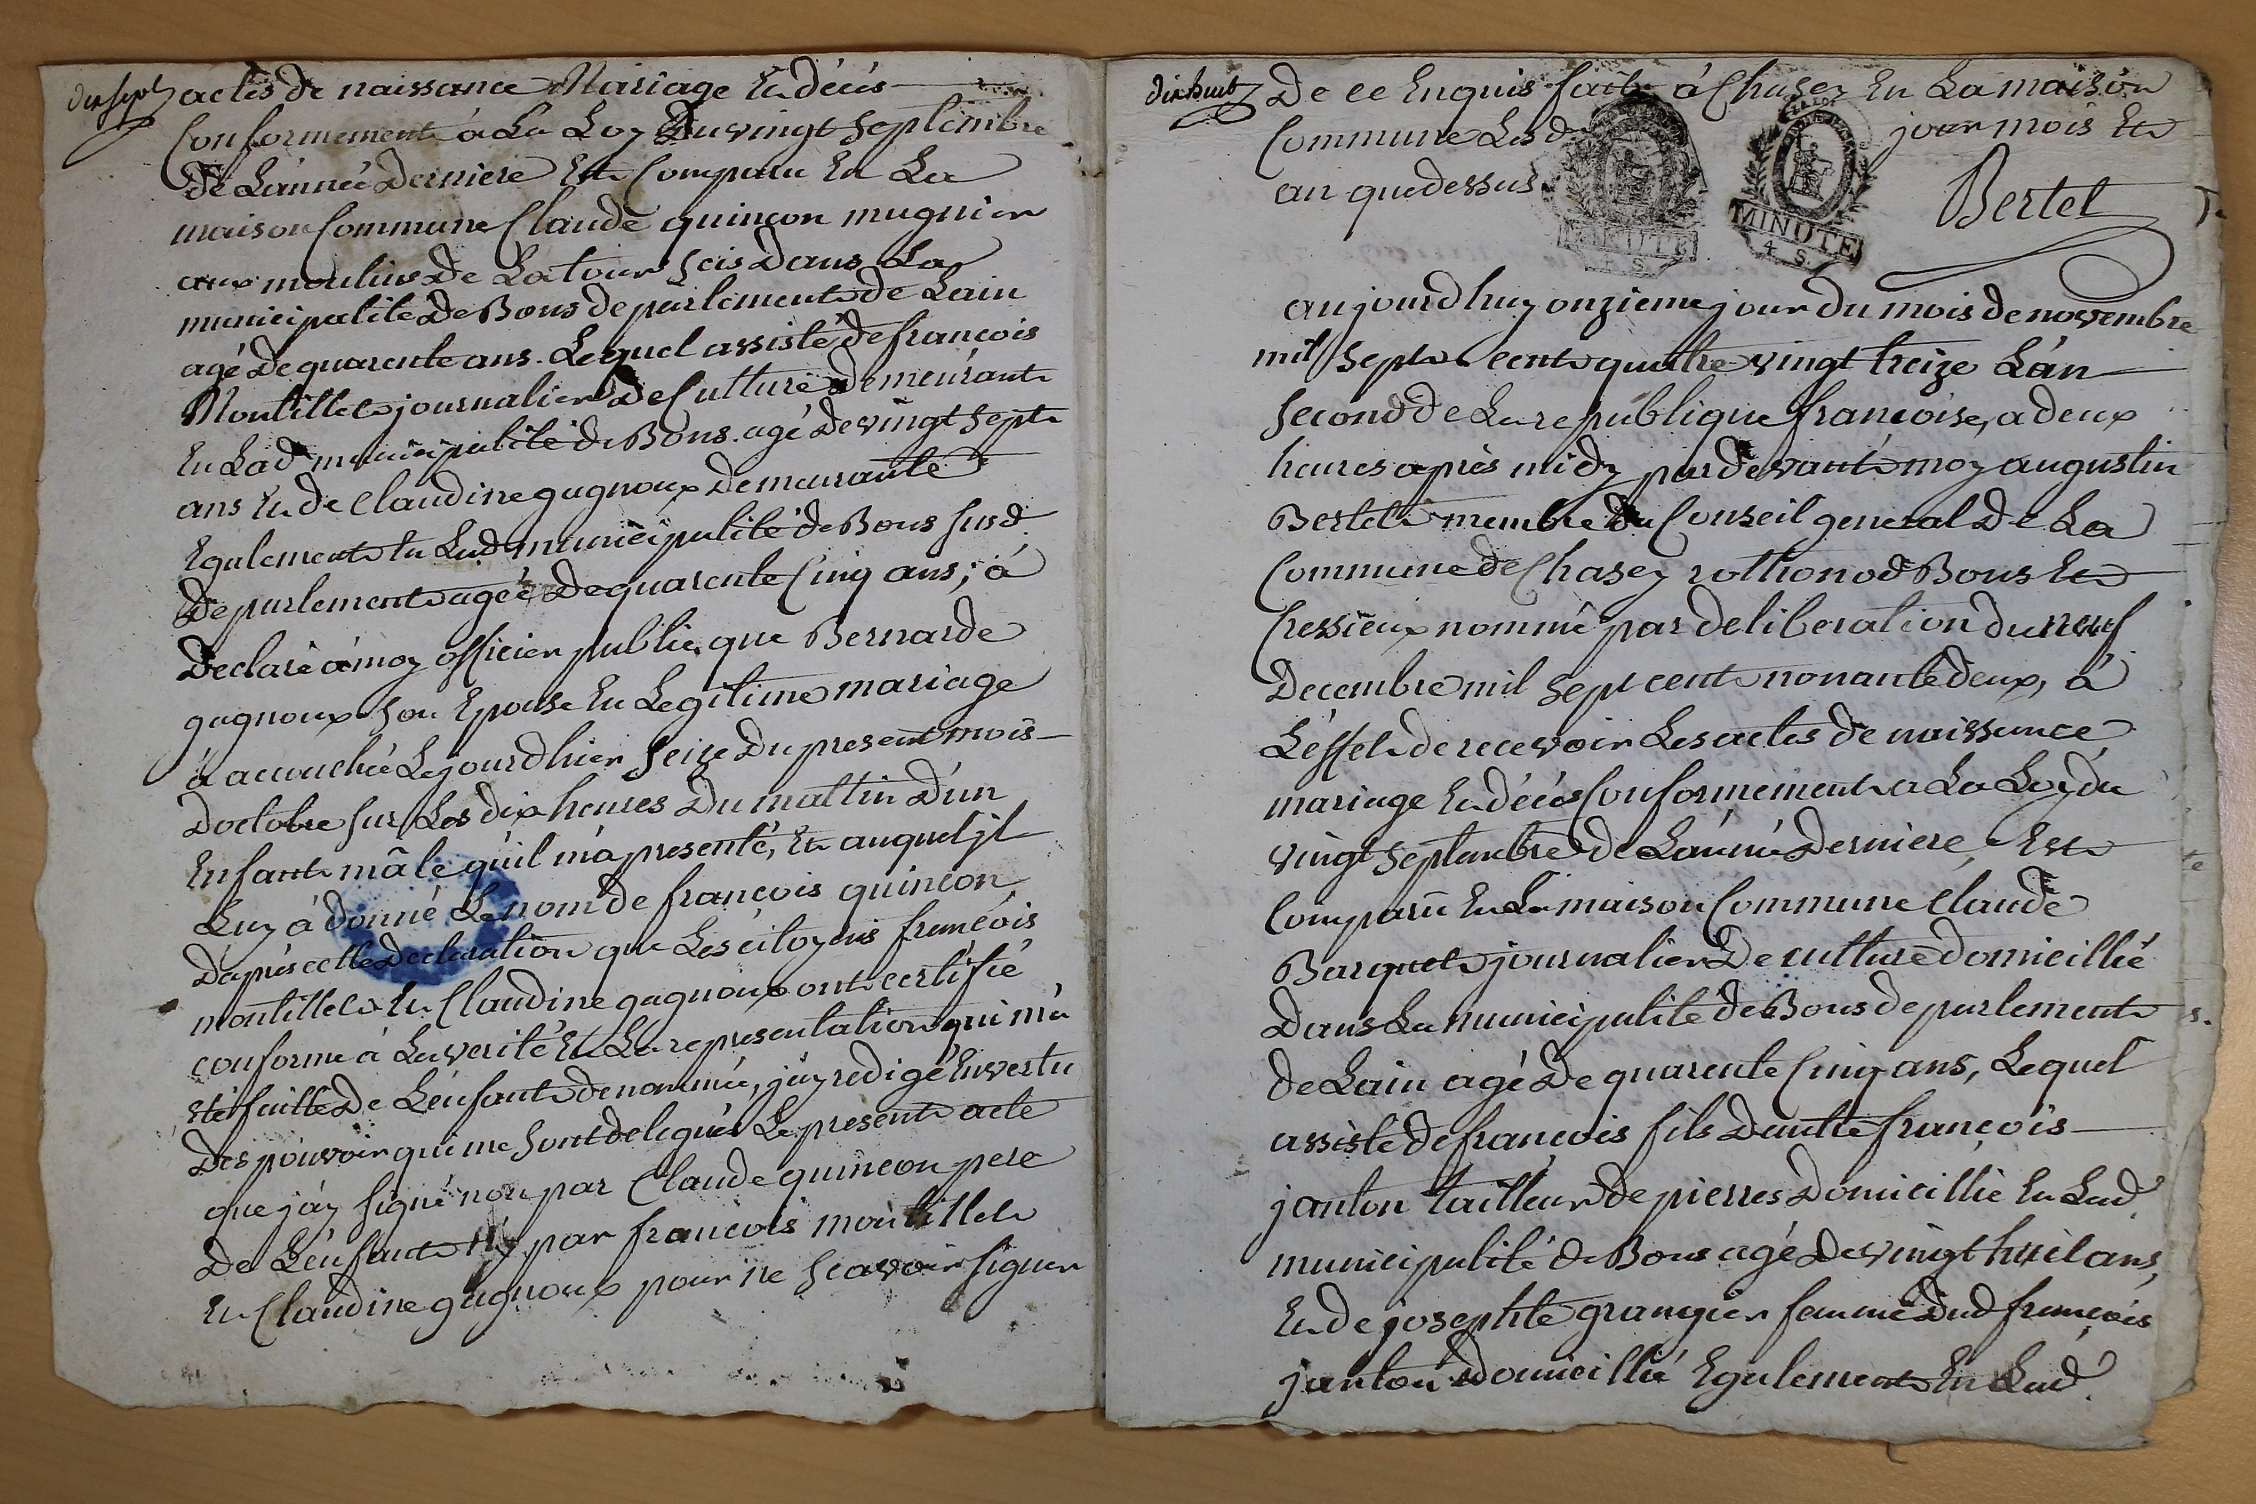 dix sept
actes de naissance Mariage Et décés
Conformement à La Loy Du vingt Septembre
de L'année Derniere Est Comparu En La
maison Commune Claude quinçon mugnier
aux moulins De La tour Scis Dans La
municipalité De Bons departement de Lain
agé De quarente ans. Lequel assisté De françois
Montillet journalier De Culture Demeurant
En Lad municipalité de Bons agé De vingt Sept
ans Et de Claudine gugnoux Demeurante
Egalement En Lad municipalité de Bons susd
Departement agée De quarente Cinq ans; à
Declaré à moy officier public que Bernarde
gugnoux son Epouse En Legitime mariage
à accouchée Le jourd'hier seize Du present mois
D'octobre sur Les dix heures Du mattin D'un
Enfant mâle qu'il m'a presenté, Et auquel jl
Luy à donné Le nom de françois quinçon
D'après cette Declaration que Les citoyens françois
montillet Et Claudine gugnoux ont certifié
conforme à La verité Et La representation qui m'a
été faitte De L'enfant denommé, j'ay redigé En vertu
Des pouvoir qui me sont delegués Le present acte
que j'ay signé non par Claude quinçon pere
De L'enfant Ny par françois montillet
Et Claudine gugnoux pour ne sçavoir signer
dix huit
De ce Enquis fait à Chasey En La maison
Commune Les d jour mois Et
an que dessus
Bertet
MINUTE
4. S.
MINUTE
4. S.
aujourd'huy onzieme jour du mois de novembre
mil sept cent quatre vingt treize L'an
second de La republique françoise, a deux
heures après midy pardevant moy augustin
Bertet membre Du Conseil general De La
Commune de Chasey rothonod Bons Et
Cressieux nommé par deliberation du neuf
Decembre mil sept cent nonante deux, à
L'effet de recevoir Les actes de naissance
mariage Et décés Conformement a La Loy du
vingt septembre de L'année Derniere, Est
Comparu En La maison Commune Claude
Barquet journalier De culture domicillié
Dans La municipalité de Bons departement
de Lain agé De quarente Cinq ans, Lequel
assisté de françois fils D'autre françois
janton tailleur de pierres Domicillié En Lad.
municipalité de Bons agé De vingt huit ans,
Et de josephte grangier femme Dud françois
janton Domicillié Egalement En Lad.